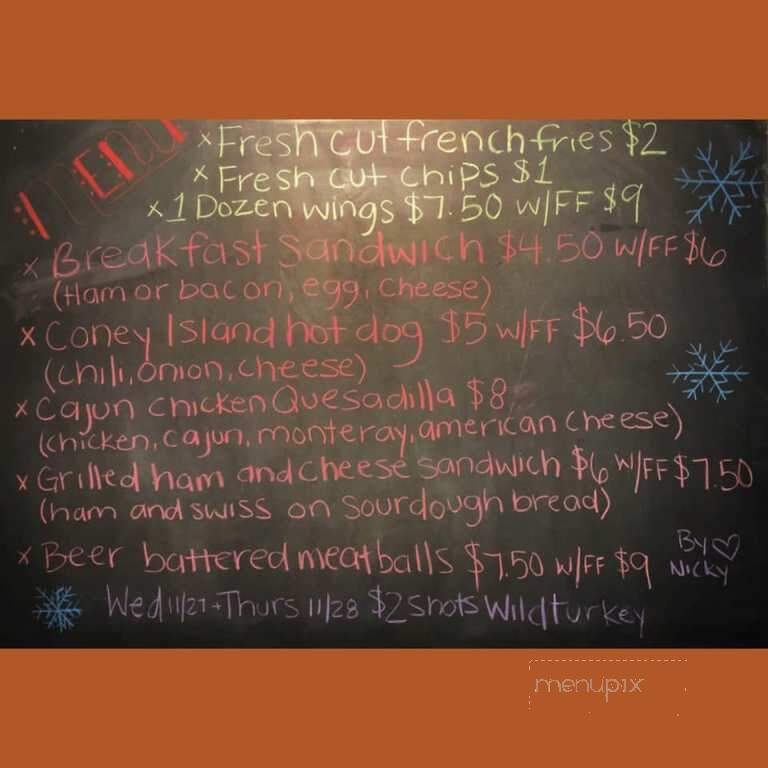 MENU
x Fresh cut french fries $2
x Fresh cut chips $1
x 1 Dozen wings $7.50 w/FF $9
x Breakfast Sandwich $4.50 w/FF $6
(Ham or bacon, egg, cheese)
x Coney Island hot dog $5 w/FF $6.50
(chili, onion, cheese)
x Cajun chicken Quesadilla $8
(chicken, cajun, monteray, american cheese)
x Grilled ham and cheese sandwich $6 w/FF $7.50
(ham and swiss on sourdough bread)
x Beer battered meatballs $7.50 w/FF $9
By ♡
Nicky
Wed 11/27 + Thurs 11/28 $2 shots Wild turkey
menupix